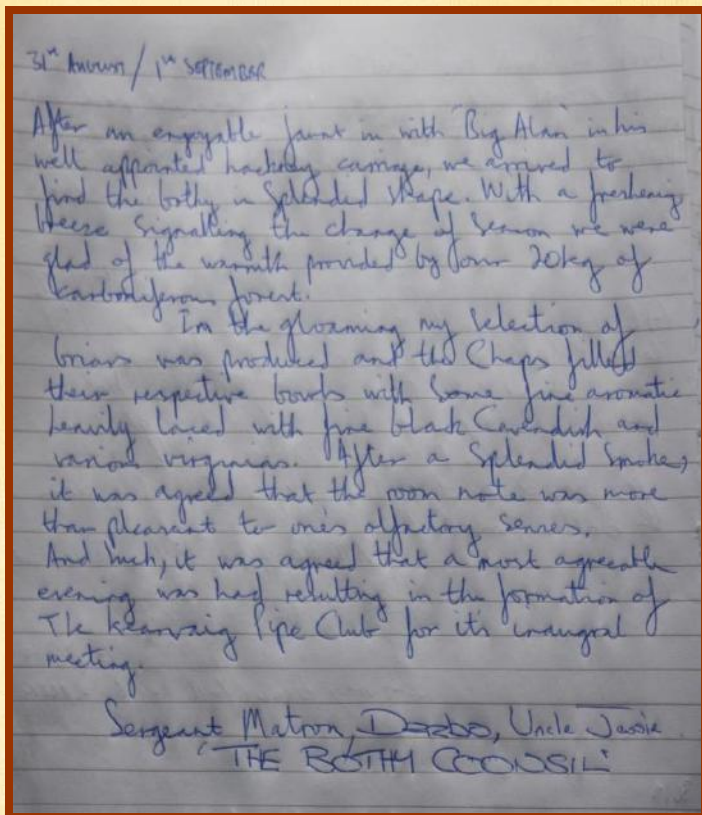 31st August / 1st SEPTEMBER
After an enjoyable jaunt in with "Big Alan" in his
well appointed hackney carriage, we arrived to
find the bothy in splendid shape. With a freshening
breeze signalling the change of season we were
glad of the warmth provided by our 20kg of
carboniferous forest.
In the gloaming my selection of
briars was produced and the Chaps filled
their respective bowls with some fine aromatic
heavily laced with fine black Cavendish and
various virginias. After a splendid smoke,
it was agreed that the room note was more
than pleasant to one's olfactory senses.
And such, it was agreed that a most agreeable
evening was had resulting in the formation of
The Kearvaig Pipe Club for its inaugral
meeting.
Sergeant Matron, Dezbo, Uncle Jassie
'THE BOTHY COONSIL'